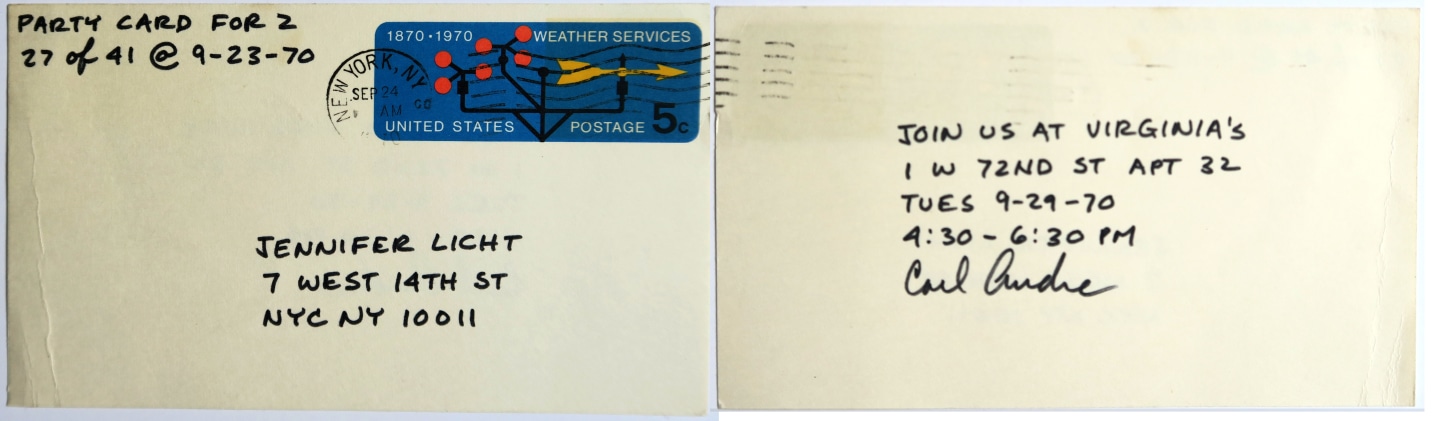 PARTY CARD FOR 2
27 of 41 @ 9-23-70
1870·1970 WEATHER SERVICES
NEW YORK, NY
SEP 24
AM
UNITED STATES POSTAGE 5c
JENNIFER LICHT
7 WEST 14TH ST
NYC NY 10011
JOIN US AT VIRGINIA'S
1 W 72ND ST APT 32
TUES 9-29-70
4:30 - 6:30 PM
Carl Andre